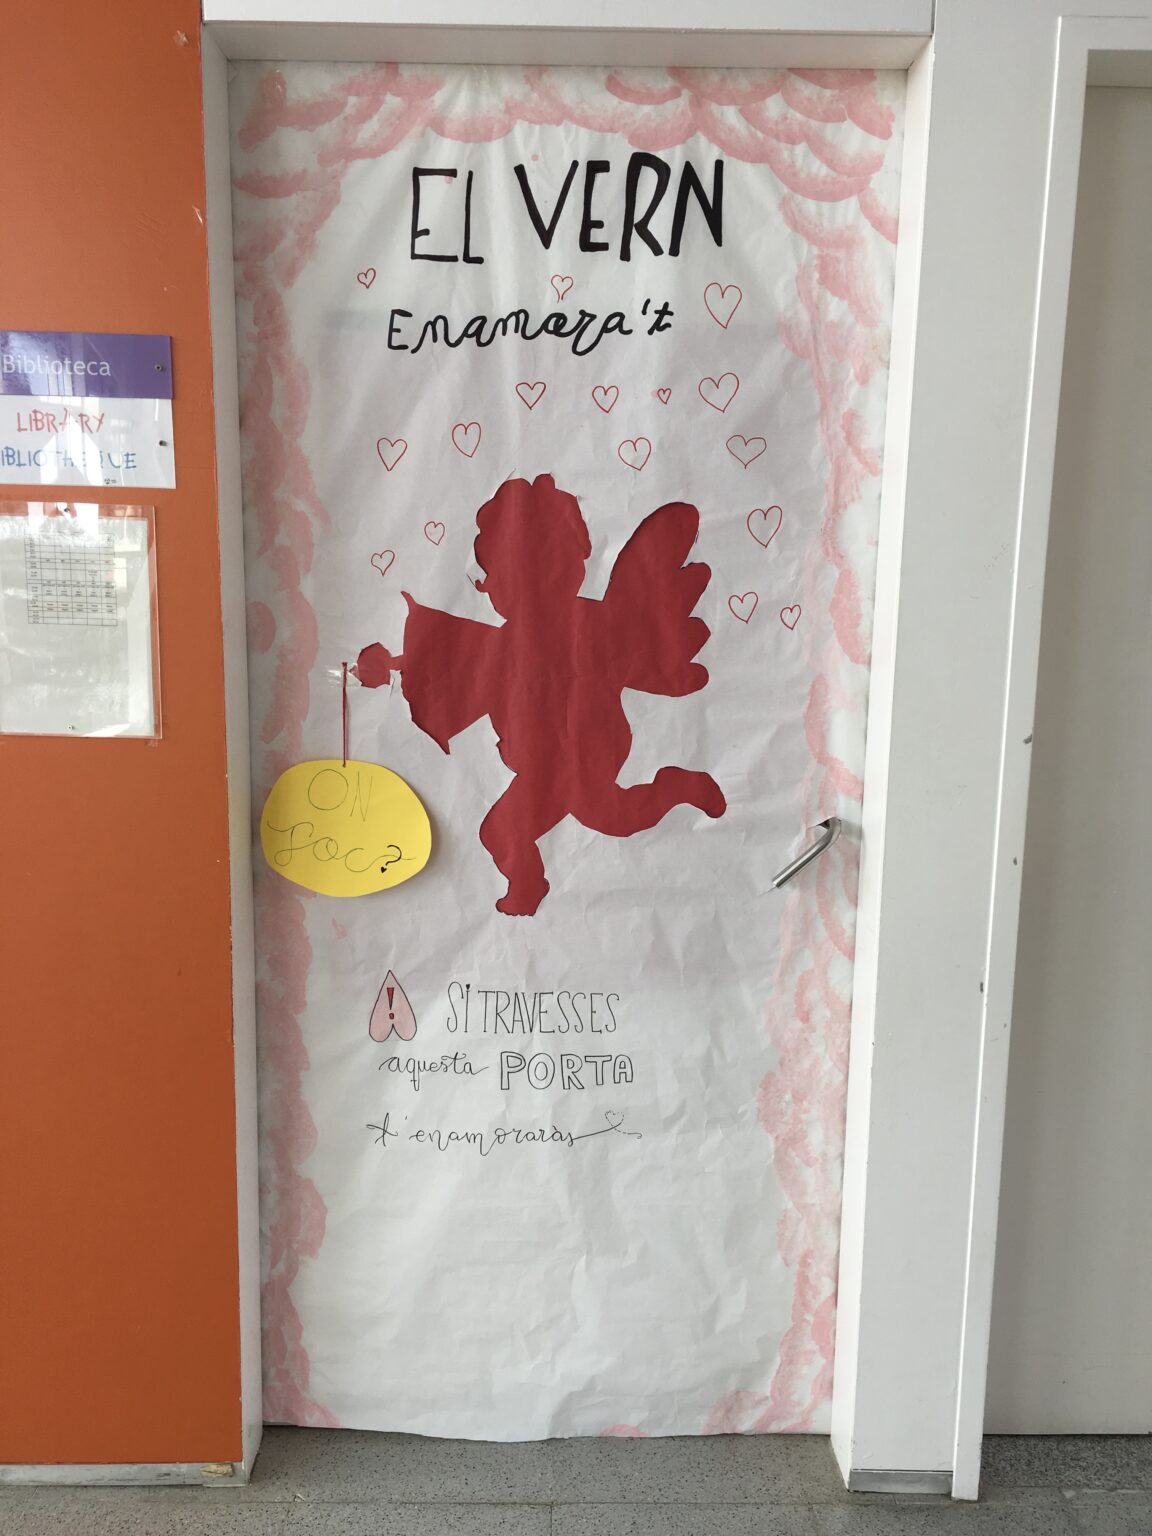 EL VERN
Enamora't
Biblioteca
LIBRARY
BIBLIOTHEQUE
ON
Toc?
! SI TRAVESSES
aquesta PORTA
t'enamoraràs